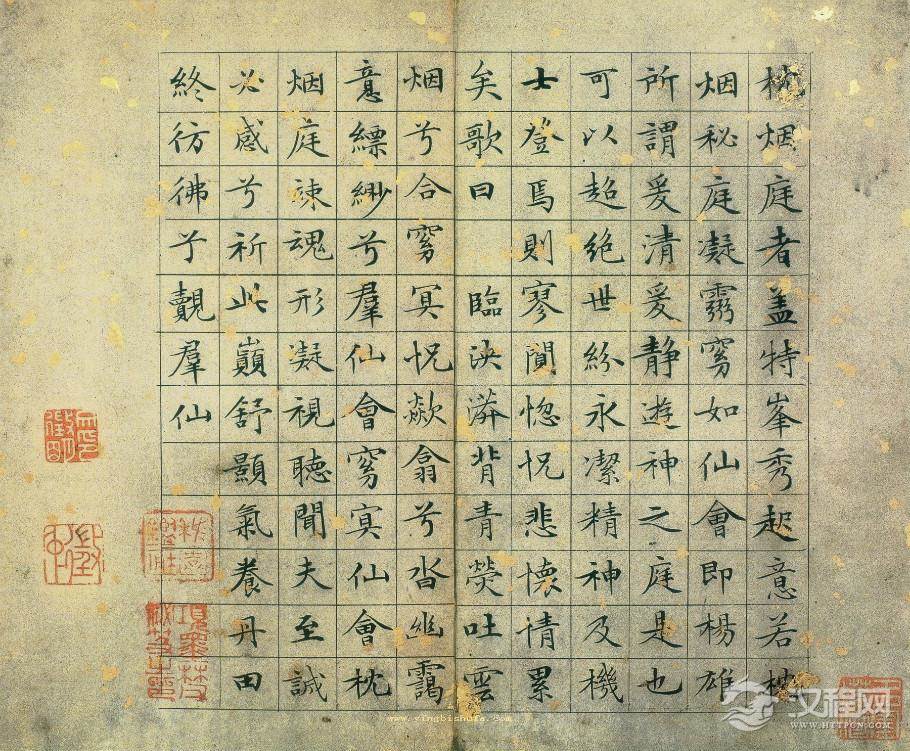 枕烟庭者盖特峯秀起意若枕
烟秘庭凝靈窈如仙會即楊雄
所謂爰清爰静遊神之庭是也
可以超絶世紛永潔精神及機
士登焉則寥闃惚怳悲懷情累
矣歌曰 臨泱漭背青熒吐雲
烟兮合窈冥怳欻翕兮沓幽靄
意縹緲兮羣仙會窈冥仙會枕
烟庭竦魂形凝視聽聞夫至誠
必感兮祈此巔舒顥氣養丹田
終彷彿兮覿羣仙
徵明
www.yingbishufa.com
汉程网
WWW.HTTPCN.COM